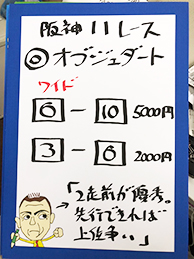 阪神11レース
◎オブジュダート
ワイド
6-10 5000円
3-6 2000円
「2走前が優秀。
先行できれば
上位争い」